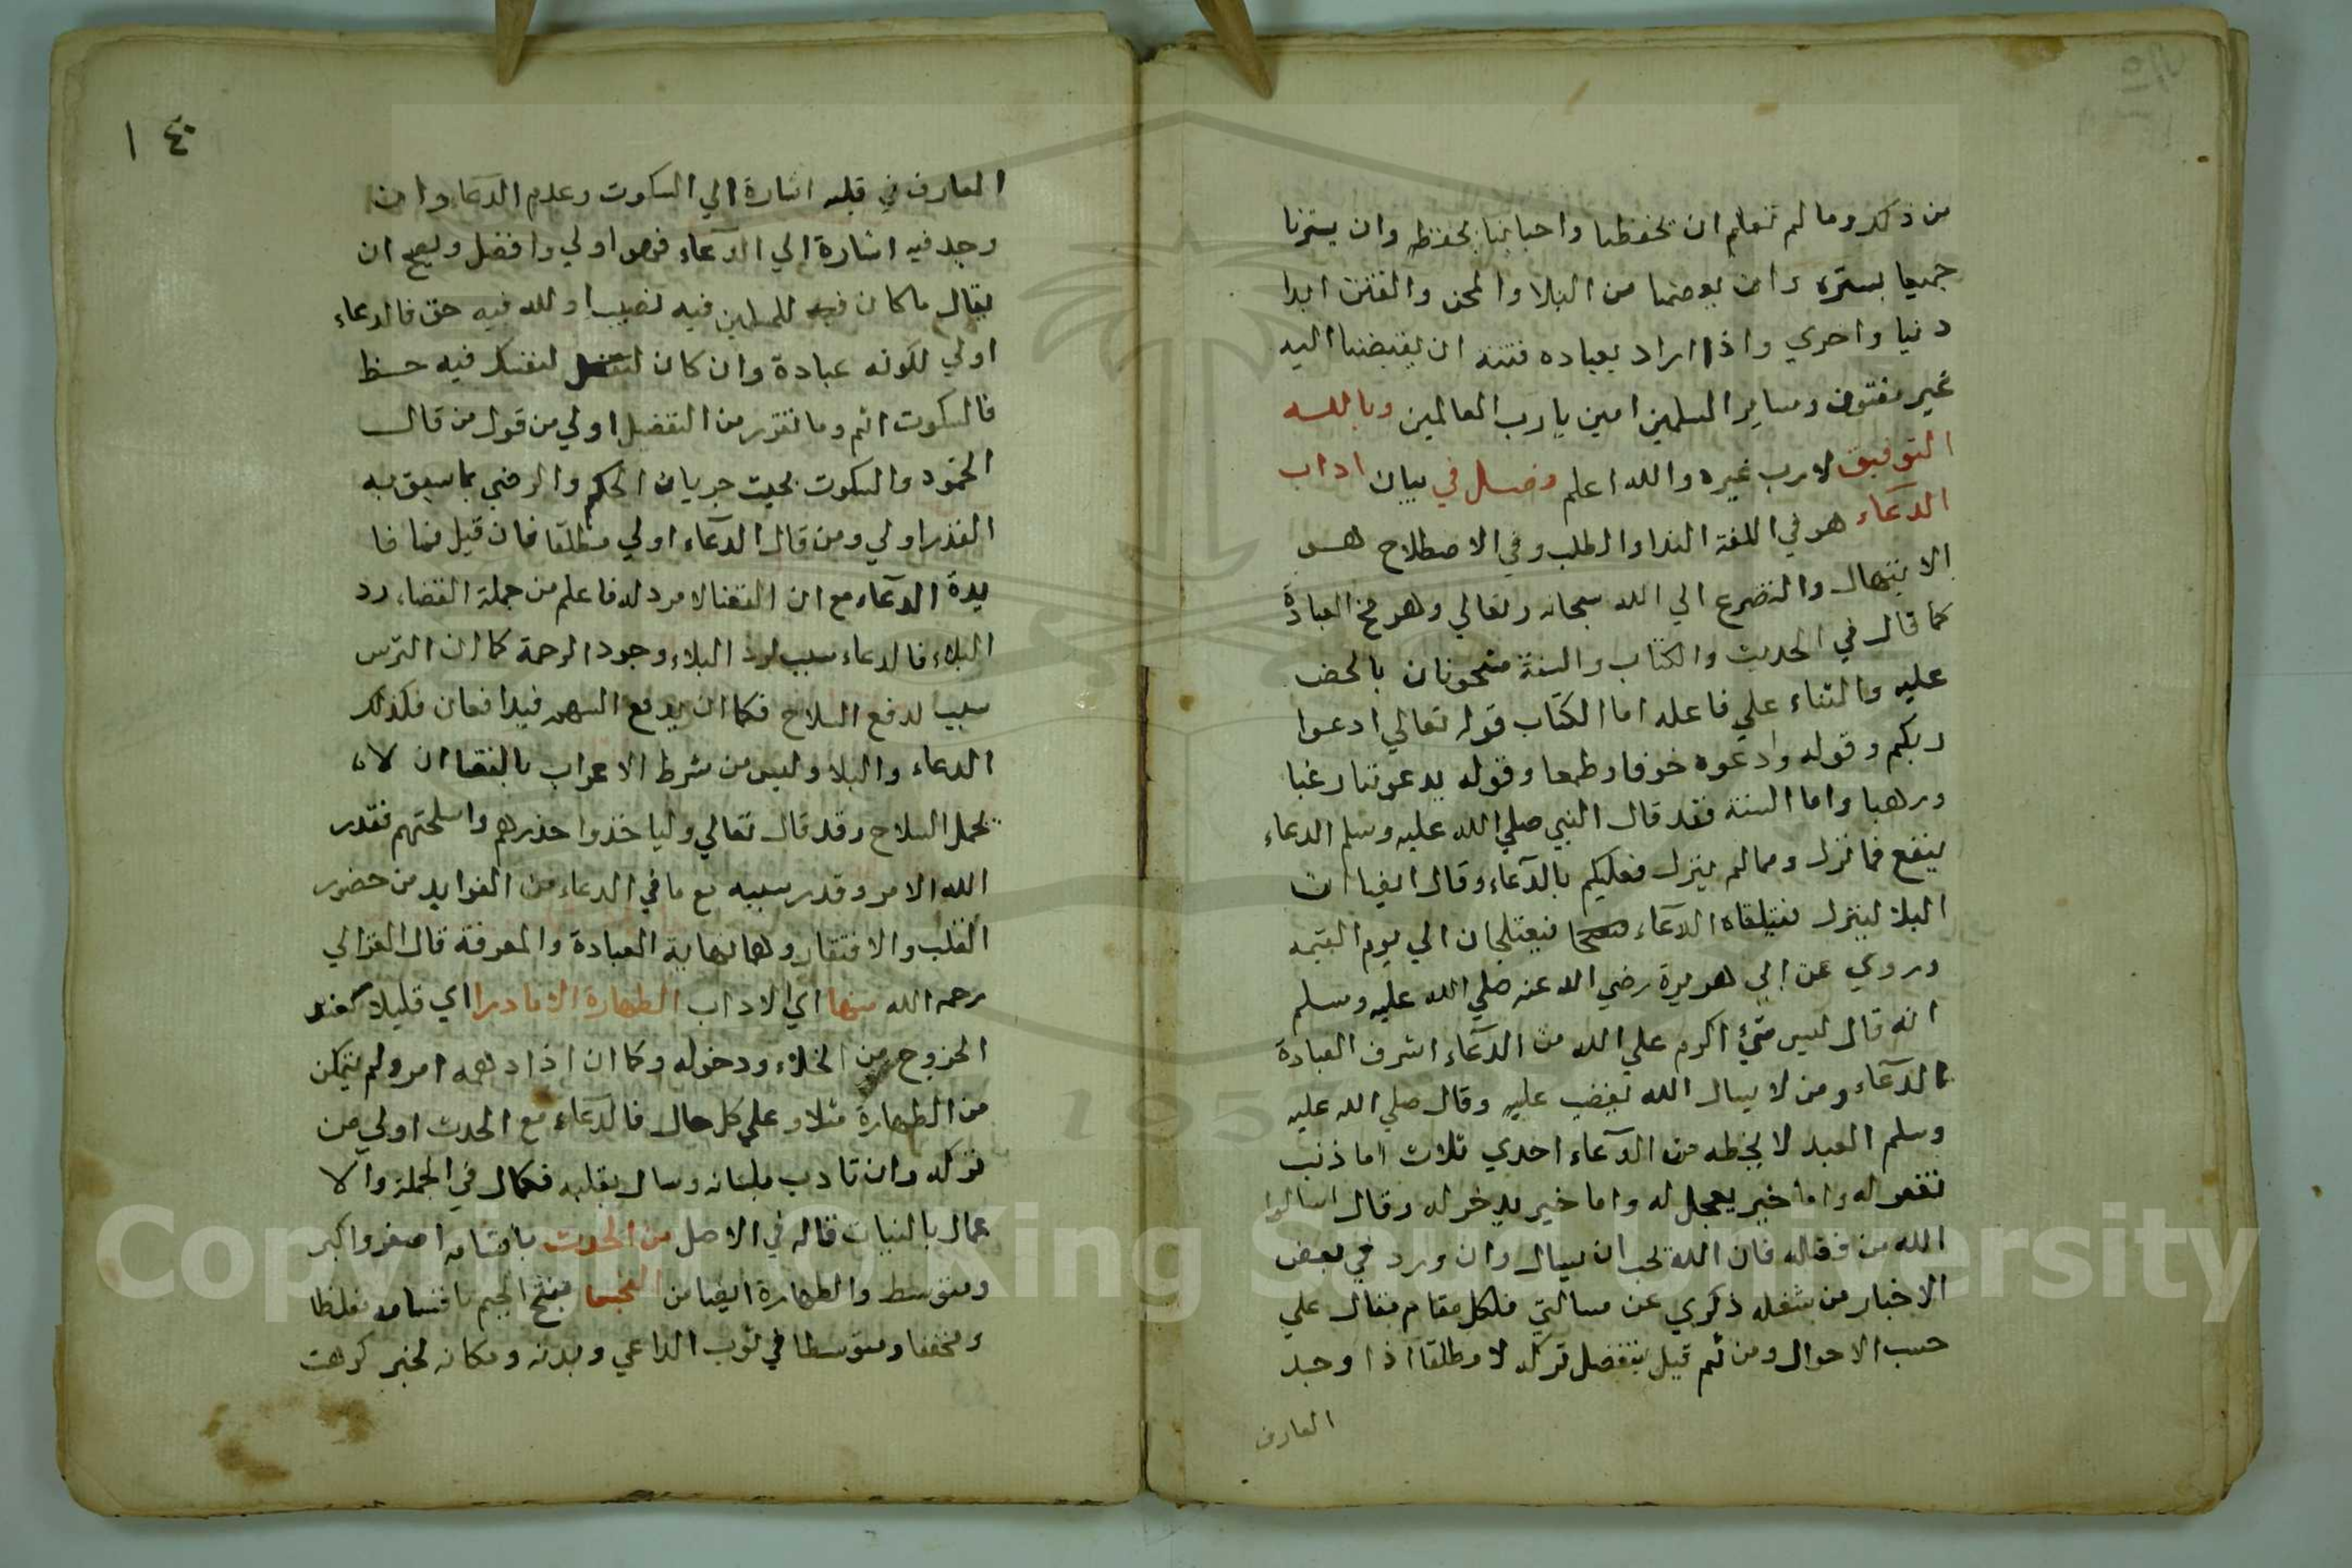 من ذلك وما لم تعلم ان يحفظنا واحبابنا بحفظه وان يسترنا
جميعا بستره وان يعصمنا من البلا والمحن والفتن ابدا
دنيا واخري واذا اراد بعباده فتنة ان يقبضنا اليه
غير مفتون وساير المسلمين امين يارب العالمين وبالله
التوفيق لارب غيره والله اعلم فصل في بيان اداب
الدعاء هو في اللغة الندا والطلب وفي الاصطلاح هو
الابتهال والتضرع الي الله سبحانه وتعالي وهو مخ العبادة
كما قال في الحديث والكتاب والسنة مشحونان بالحض
عليه والثناء علي فاعله اما الكتاب قوله تعالي ادعوا
ربكم وقوله وادعوه خوفا وطمعا وقوله يدعوننا رغبا
ورهبا واما السنة فقد قال النبي صلي الله عليه وسلم الدعاء
ينفع مما نزل ومما لم ينزل فعليكم بالدعاء وقال ايضا ان
البلا لينزل فيتلقاه الدعاء فيعتلجان الي يوم القيمه
وروي عن ابي هريرة رضي الله عنه صلي الله عليه وسلم
انه قال ليس شئ اكرم علي الله من الدعاء اشرف العبادة
الدعاء ومن لا يسال الله يغضب عليه وقال صلي الله عليه
وسلم العبد لا يخطه من الدعاء احدي ثلاث اما ذنب
يغفر له واما خير يعجل له واما خير يدخر له وقال اسالوا
الله من فضله فان الله يحب ان يسال وان ورد في بعض
الاخبار من شغله ذكري عن مسالتي فلكل مقام مقال علي
حسب الاحوال ومن ثم قيل بتفضل تركه لا مطلقا اذا وجد
العارف
١٤٠
العارف في قلبه اشارة الي السكوت وعدم الدعا وان
وجد فيه اشارة الي الدعاء فهو اولي وافضل ويصح ان
يقال ما كان فيه للمسلمين فيه نصيب او لله فيه حق فالدعاء
اولي لكونه عبادة وان كان لنفسك فيه حظ
فالسكوت اتم وما تقرر من التفضيل اولي من قول من قال
الخمود والسكوت تحت جريان الحكم والرضي بما سبق به
القدر اولي ومن قال الدعاء اولي مطلقا فان قيل فما فا
يدة الدعاء مع ان القضا لا مرد له فاعلم من جملة القضاء رد
البلاء فالدعاء سبب لرد البلاء وجود الرحمة كما ان الترس
سبب لدفع السلاح فكما ان يدفع السهم فيدافعان فكذلك
الدعاء والبلا وليس من شرط الاعراب بالقضا ان لا
يحمل السلاح وقد قال تعالي ولياخذوا حذرهم واسلحتهم فقدر
الله الامر وقدر سببه مع ما في الدعاء من الفوايد من حضور
القلب والافتقار وهما نهاية العبادة والمعرفة قال الغزالي
رحمه الله منها اي الاداب الطهارة الا نادرا اي قليلا كعند
الخروج من الخلاء ودخوله وكما ان اذا دهمه امر ولم يتمكن
من الطهارة مثلا وعلي كل حال فالدعاء مع الحدث اولي من
تركه وان تادب بلسانه وسال بقلبه فكمال في الجملة والا
عمال بالنيات قاله في الاصل من الحدث باقسامه اصغر واكبر
ومتوسط والطهارة ايضا من النجس بفتح الجيم باقسامه مغلظا
ومخففا ومتوسطا في ثوب الداعي وبدنه ومكانه لخبر كرهت